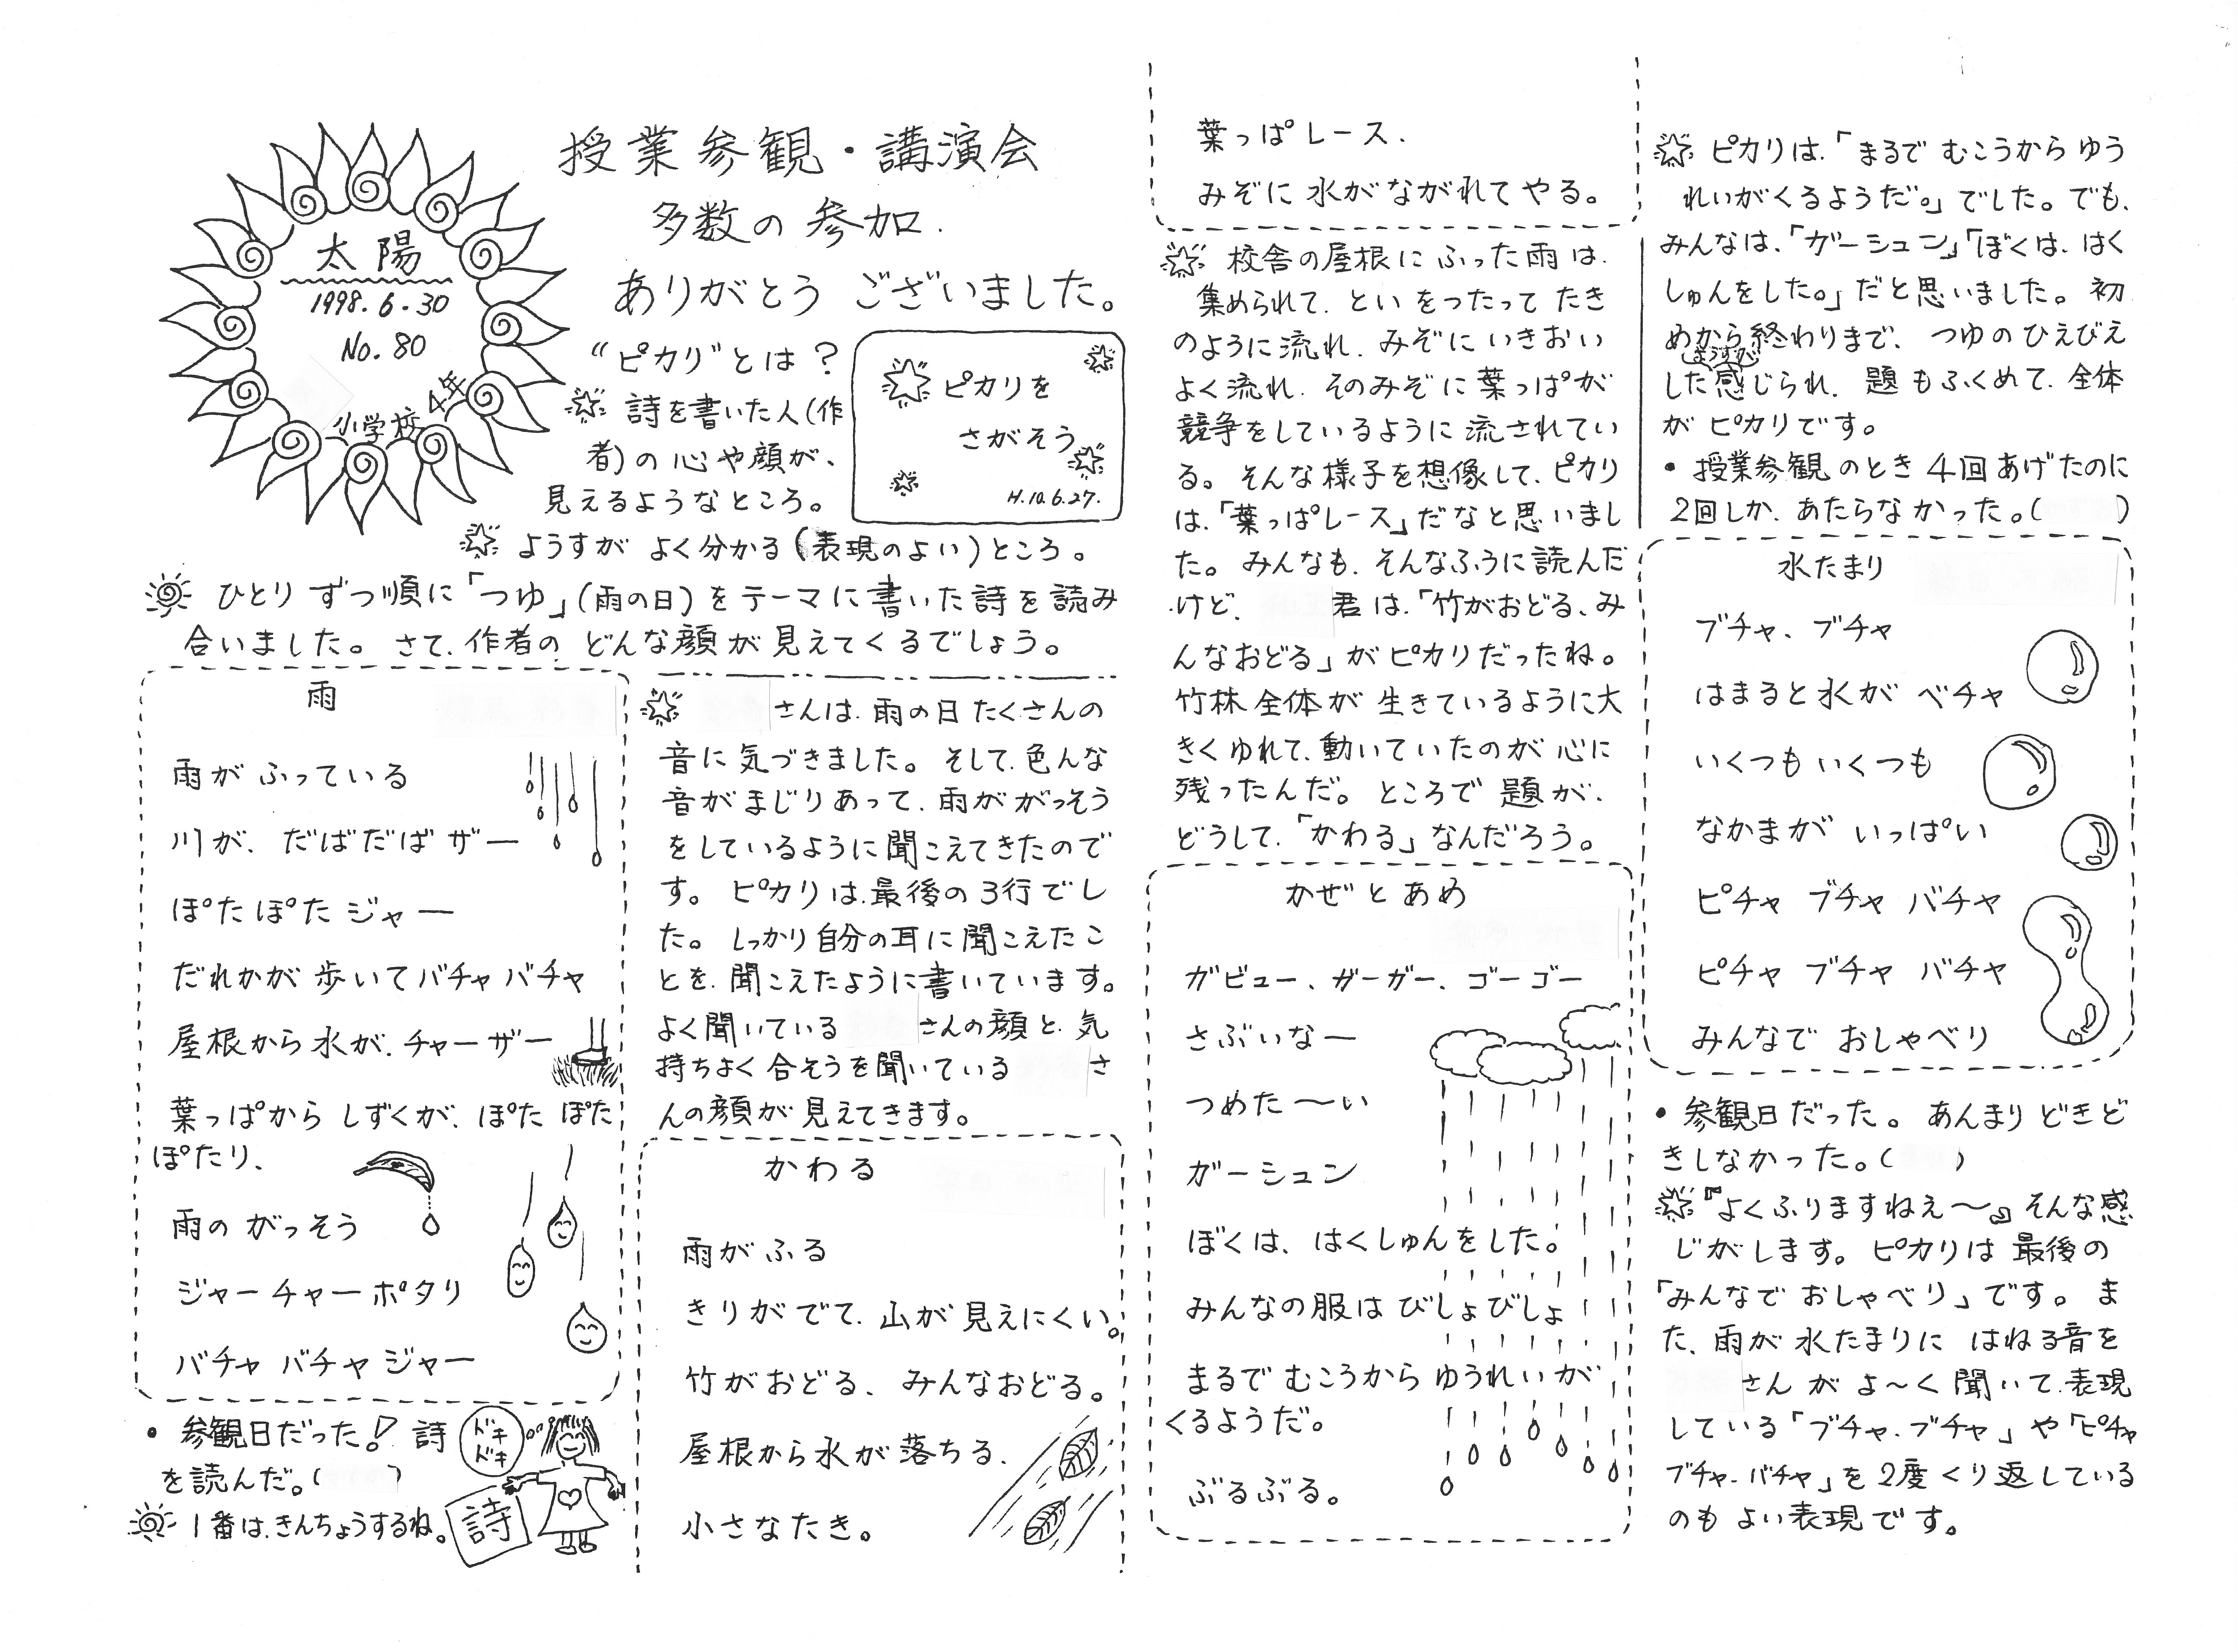 太陽
1998.6.30
No.80
小学校4年
授業参観・講演会
多数の参加.
ありがとうございました。
“ピカリ”とは？
詩を書いた人(作
者)の心や顔が、
見えるようなところ。
ようすがよく分かる(表現のよい)ところ。
ピカリを
さがそう
H.10.6.27.
ひとりずつ順に「つゆ」(雨の日)をテーマに書いた詩を読み
合いました。さて、作者のどんな顔が見えてくるでしょう。
雨
雨がふっている
川が、だばだばザー
ぽたぽたジャー
だれかが歩いてバチャバチャ
屋根から水が、チャーザー
葉っぱからしずくが、ぽたぽた
ぽたり、
雨のがっそう
ジャーチャーポタリ
バチャバチャジャー
・参観日だった!詩
を読んだ。( )
ドキ
ドキ
詩
1番は、きんちょうするね。
さんは、雨の日たくさんの
音に気づきました。そして、色んな
音がまじりあって、雨ががっそう
をしているように聞こえてきたので
す。ピカリは、最後の3行でし
た。しっかり自分の耳に聞こえたこ
とを、聞こえたように書いています。
よく聞いている さんの顔と、気
持ちよく合そうを聞いている さ
んの顔が見えてきます。
かわる
雨がふる
きりがでて、山が見えにくい。
竹がおどる、みんなおどる。
屋根から水が落ちる、
小さなたき。
葉っぱレース、
みぞに水がながれてやる。
校舎の屋根にふった雨は、
集められて、といをつたってたき
のように流れ、みぞにいきおい
よく流れ、そのみぞに葉っぱが
競争をしているように流されてい
る。そんな様子を想像して、ピカリ
は、「葉っぱレース」だなと思いまし
た。みんなも、そんなふうに読んだ
けど、 君は、「竹がおどる、み
んなおどる」がピカリだったね。
竹林全体が生きているように大
きくゆれて、動いていたのが心に
残ったんだ。ところで題が、
どうして、「かわる」なんだろう。
かぜとあめ
ガビュー、ガーガー、ゴーゴー
さぶいなー
つめた〜い
ガーシュン
ぼくは、はくしゅんをした。
みんなの服はびしょびしょ
まるでむこうからゆうれいが
くるようだ。
ぶるぶる。
ピカリは、「まるでむこうからゆう
れいがくるようだ。」でした。でも、
みんなは、「ガーシュン」「ぼくは、はく
しゅんをした。」だと思いました。初
めから終わりまで、つゆのひえびえ
した
ようすが
感じられ、題もふくめて、全体
がピカリです。
・授業参観のとき4回あげたのに
2回しか、あたらなかった。( )
水たまり
ブチャ、ブチャ
はまると水がベチャ
いくつもいくつも
なかまがいっぱい
ピチャ ブチャ バチャ
ピチャ ブチャ バチャ
みんなでおしゃべり
・参観日だった。あんまりどきど
きしなかった。( )
『よくふりますねえ〜』そんな感
じがします。ピカリは最後の
「みんなでおしゃべり」です。ま
た、雨が水たまりにはねる音を
さんがよ〜く聞いて、表現
している「ブチャ、ブチャ」や「ピチャ
ブチャ、バチャ」を2度くり返している
のもよい表現です。